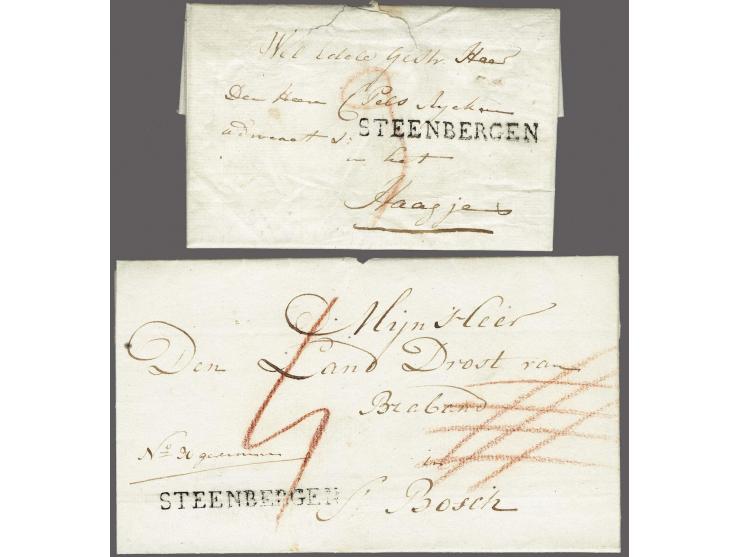 Wel Edele Gestr. Heer
Den Heere Pels Rycken
advocaat
STEENBERGEN
in het
Haagje
Mijn Heer
Den Land Drost van
Braband
in
No 30
STEENBERGEN
Bosch